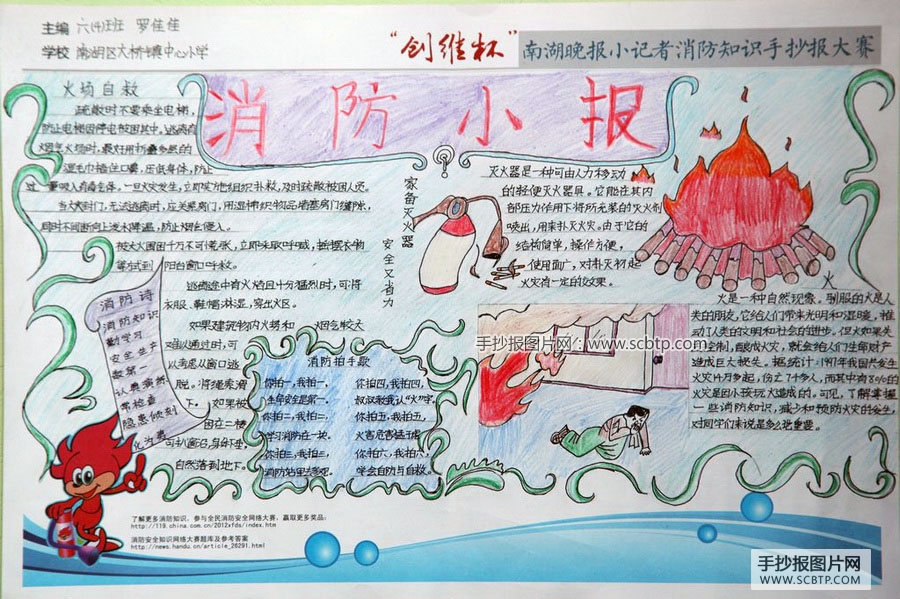 主编 六(4)班 罗佳佳
学校 南湖区大桥镇中心小学
“创维杯”南湖晚报小记者消防知识手抄报大赛
消防小报
火场自救
疏散时不要乘坐电梯,
防止电梯因停电被困其中,逃离有
烟气火场时,最好用折叠多层的
湿毛巾捂住口鼻,压低身体,防止
过量吸入有毒气体,一旦火灾发生,立即实施组织扑救,及时疏散被困人员。
当大火封门,无法逃离时,应关紧房门,用湿棉织物品堵塞房门缝隙,
同时不间断向上泼水降温,防止烟气侵入。
被大火围困千万不可
立即采取呼喊,
等方式到 阳台窗口呼救。
逃离途中有火焰且十分猛烈时,可将
衣服、鞋帽淋湿,突出火区。
如果建筑物内火势和 烟气较大
难以通过时,可
以考虑从窗口逃
脱。将绳索滑
下。如果被
困在二楼
自然落到地下。
消防诗
消防知识
勤学习
安全生产
数第一
认真演练
常检查
隐患倾刻
化为零
消防拍手歌
你拍一,我拍一,
生命安全是第一。
你拍二,我拍二,
学习消防在一块。
你拍三,我拍三,
你拍四,我拍四,
叔叔教我认“火”字。
你拍五,我拍五,
火害危害猛于虎。
你拍六,我拍六,
学会自防与自救。
家备灭火器
安全又省力
灭火器是一种可由人力移动
的轻便灭火器具。它能在其内
部压力作用下将所充装的灭火剂
喷出,用来扑灭火灾。由于它的
结构简单,操作方便,
使用面广,对扑灭初起
火灾有一定的效果。
火
火是一种自然现象。驯服的火是人
类的朋友,它给人们带来光明和温暖,推
动了人类的文明和社会的进步。但火如果失
去控制,酿成火灾,就会给人们生命财产
造成巨大损失。据统计:1997年我国共发生
火灾14万多起,伤亡7千多人,而其中有8%的
火灾是因小孩玩火造成的。可见,了解掌握
一些消防知识,减少和预防火灾的发生,
对同学们来说是多么地重要。
手抄报图片网:www.scbtp.com
了解更多消防知识,参与全民消防安全网络大赛,赢取更多奖品:
http://119.china.com.cn/2012xfds/index.htm
消防安全知识网络大赛题库及参考答案
http://news.handu.cn/article_26291.html
手抄报图片网
WWW.SCBTP.COM